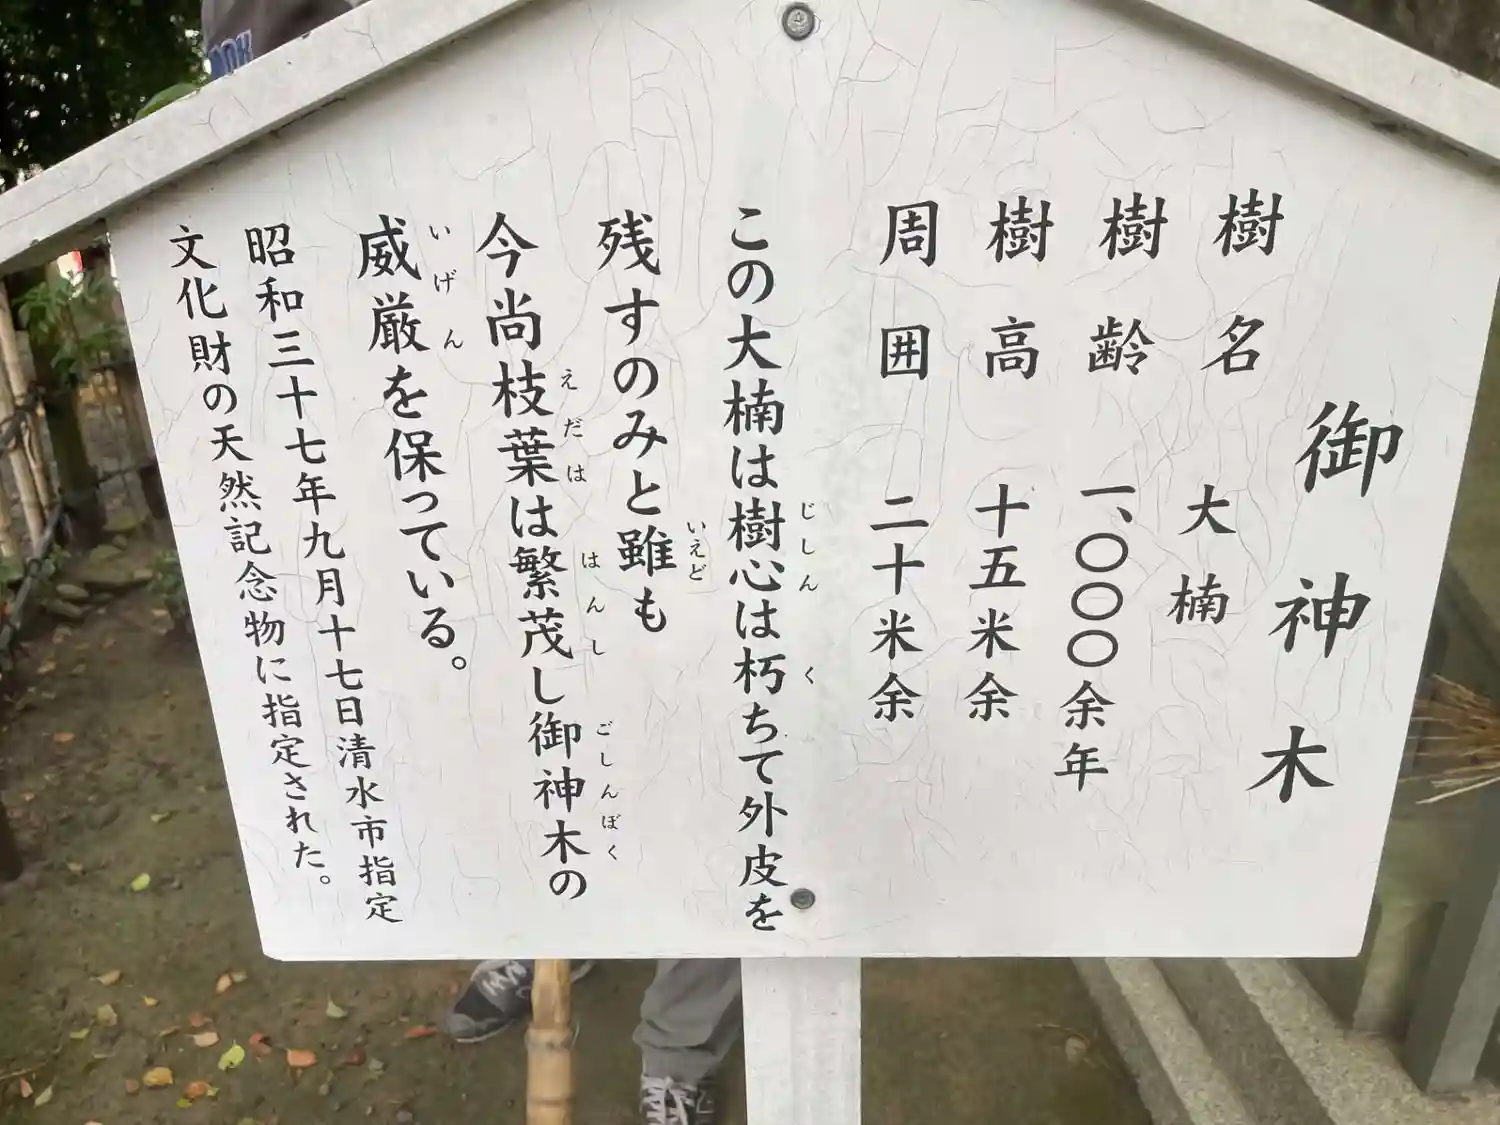 御神木
樹名 大楠
樹齢 一、〇〇〇余年
樹高 十五米余
周囲 二十米余
この大楠は樹心は朽ちて外皮を
じしん く
残すのみと雖も
いえど
今尚枝葉は繁茂し御神木の
えだは はんし ごしんぼく
威厳を保っている。
いげん
昭和三十七年九月十七日清水市指定
文化財の天然記念物に指定された。